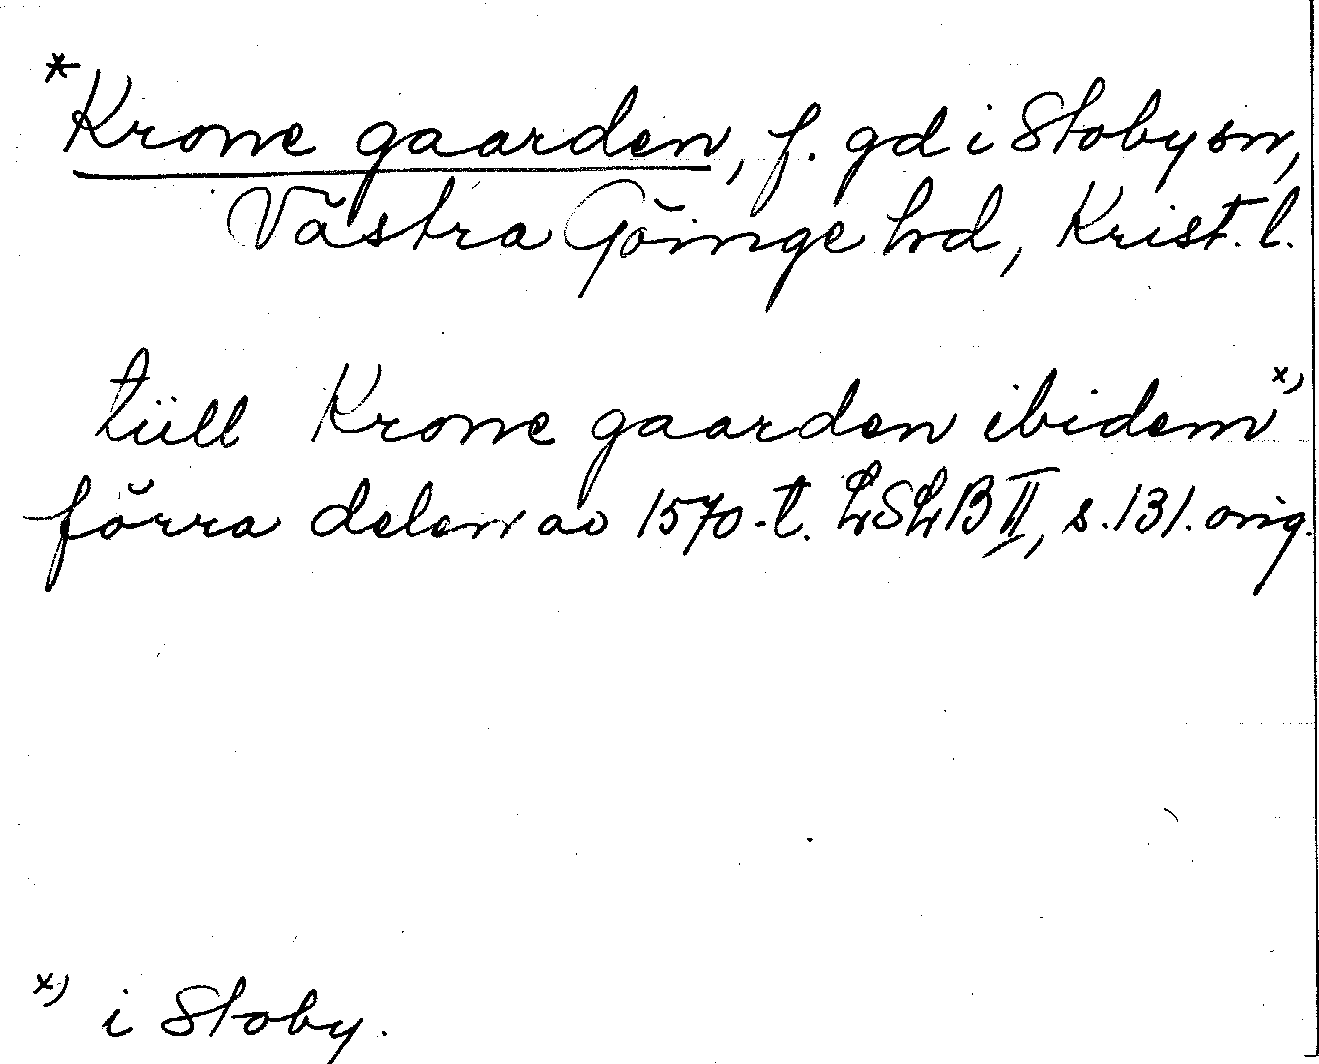 *Krone gaarden, f. gd i Stoby sn,
Västra Göinge hd, Krist. l.
tiill Krone gaarden ibidem x)
förra delen av 1570-t. LSLB II, s. 131. orig.
x) i Stoby.